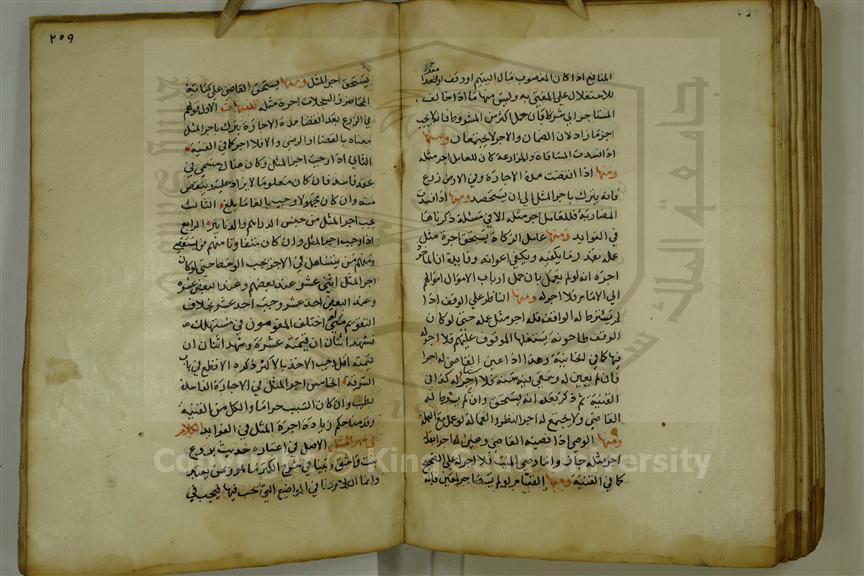 المنافع اذا كان المغصوب مال اليتيم او وقف او معدا
للاستغلال على المفتى به وليس منها ما اذا خالف
المستاجر الى شر كان حمل اكثر من المشروط فانه لا يجب
اجر ما زاد لان الضمان والاجر لا يجتمعان ومنها
اذا فسدت المساقاة والمزارعة كان للعامل اجر مثله
ومنها اذا انقضت مدة الاجارة وفي الارض زرع
فانه يترك باجر المثل الى ان يستحصد ومنها اذا فسدت
المضاربة فللعامل اجر مثله الا في مسئلة ذكرناها
في الفوايد ومنها عامل الزكاة يستحق اجرة مثل
عمله بقدر ما يكفيه ويكفي اعوانه وفايدة ان الماخوذ
اجرة انه لو لم يعمل بان حمل ارباب الاموال اموالهم
الى الامام فلا اجر له ومنها الناظر على الوقف اذا
لم يشترط له الواقف فله اجر مثل عمله حتى لو كان
الوقف طاحونة يستغلها الموقوف عليهم فلا اجر له
فيها كما في الخانية وهذا اذا عين القاضي له اجرا
فان لم يعين له وسعى فيه سنة فلا اجر له كذا في
القنية ثم ذكر بعده انه يستحق وان لم يشترط له
القاضي ولا يجتمع له اجر النظر والعمالة لو عمل مع العملة
ومنها الوصي اذا نصبه القاضي وعين له اجرا بقدر
اجر مثله جاز واما وصي الميت فلا اجر له على الصحيح
كما في القنية ومنها القسام لو لم يستاجر بمعين فانه
٢٥٩
يستحق اجر المثل ومنها يستحق القاضي على كتابة
المحاضر والسجلات اجرة مثله تنبيهات الاول قولهم
في الزرع بعد انقضا مدة الاجارة يترك باجر المثل
معناه بالقضا او الرضى والا فلا اجر كما في القنية
الثاني اذا وجب اجر المثل وكان هناك مسمى في
عقد فاسد فان كان معلوما لا يزاد عليه وينقص
منه وان كان مجهولا وجب بالغا ما بلغ الثالث
يجب اجر المثل من جنس الدراهم والدنانير الرابع
اذا وجب اجر المثل وان كان متفاوتا منهم من يستقصي
ومنهم من يتساهل في الاجر يجب الوسط حتى لو كان
اجر المثل اثنى عشر عند بعضهم وعند البعض عشرة
وعند البعض احد عشر وجب احد عشر بخلاف
التقويم لو اختلف المقومون في مستهلك
فشهد اثنان ان قيمته عشرة وشهد اثنان ان
قيمته اقل وجب الاخذ بالاكثر ذكره الاقطع في باب
السرقة الخامس اجر المثل في الاجارة الفاسدة
يطيب وان كان السبب حراما والكل من القنية
وقدمنا حكم زيادة اجرة المثل في الفوايد الكلام
في مهر المثل الاصل في اعتباره حديث بروع
بنت واشق وبينا في شرح الكنز ما هو ومن يعتبر
وانما الكلام هنا في المواضع التي يجب فيها فيجب في